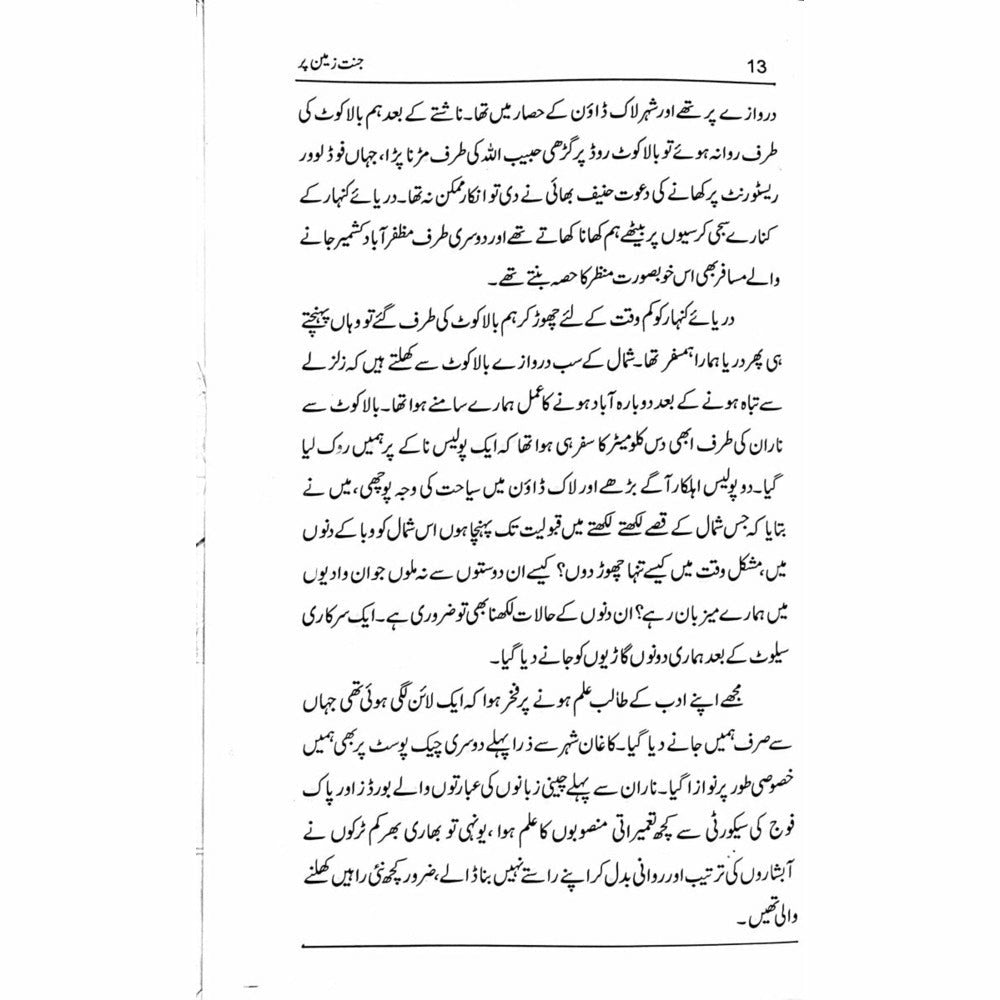 13
جنت زمین پر
دروازے پر تھے اور شہر لاک ڈاؤن کے حصار میں تھا۔ ناشتے کے بعد ہم بالاکوٹ کی
طرف روانہ ہوئے تو بالاکوٹ روڈ پر گڑھی حبیب اللہ کی طرف مڑنا پڑا، جہاں فوڈ لوور
ریسٹورنٹ پر کھانے کی دعوت حنیف بھائی نے دی تو انکار ممکن نہ تھا۔ دریائے کنہار کے
کنارے سجی کرسیوں پر بیٹھے ہم کھانا کھاتے تھے اور دوسری طرف مظفر آباد کشمیر جانے
والے مسافر بھی اس خوبصورت منظر کا حصہ بنتے تھے۔
دریائے کنہار کو کم وقت کے لئے چھوڑ کر ہم بالاکوٹ کی طرف گئے تو وہاں پہنچتے
ہی پھر دریا ہمارا ہمسفر تھا۔ شمال کے سب دروازے بالاکوٹ سے کھلتے ہیں کہ زلزلے
سے تباہ ہونے کے بعد دوبارہ آباد ہونے کا عمل ہمارے سامنے ہوا تھا۔ بالاکوٹ سے
ناران کی طرف ابھی دس کلومیٹر کا سفر ہی ہوا تھا کہ ایک پولیس ناکے پر ہمیں روک لیا
گیا۔ دو پولیس اہلکار آگے بڑھے اور لاک ڈاؤن میں سیاحت کی وجہ پوچھی، میں نے
بتایا کہ جس شمال کے قصے لکھتے لکھتے میں قبولیت تک پہنچا ہوں اس شمال کو وبا کے دنوں
میں، مشکل وقت میں کیسے تنہا چھوڑ دوں؟ کیسے ان دوستوں سے نہ ملوں جو ان وادیوں
میں ہمارے میزبان رہے؟ ان دنوں کے حالات لکھنا بھی تو ضروری ہے۔ ایک سرکاری
سیلوٹ کے بعد ہماری دونوں گاڑیوں کو جانے دیا گیا۔
مجھے اپنے ادب کے طالب علم ہونے پر فخر ہوا کہ ایک لائن لگی ہوئی تھی جہاں
سے صرف ہمیں جانے دیا گیا۔ کاغان شہر سے ذرا پہلے دوسری چیک پوسٹ پر بھی ہمیں
خصوصی طور پر نوازا گیا۔ ناران سے پہلے چینی زبانوں کی عبارتوں والے بورڈز اور پاک
فوج کی سیکورٹی سے کچھ تعمیراتی منصوبوں کا علم ہوا، یونہی تو بھاری بھر کم ٹرکوں نے
آبشاروں کی ترتیب اور روانی بدل کر اپنے راستے نہیں بنا ڈالے، ضرور کچھ نئی راہیں کھلنے
والی تھیں۔